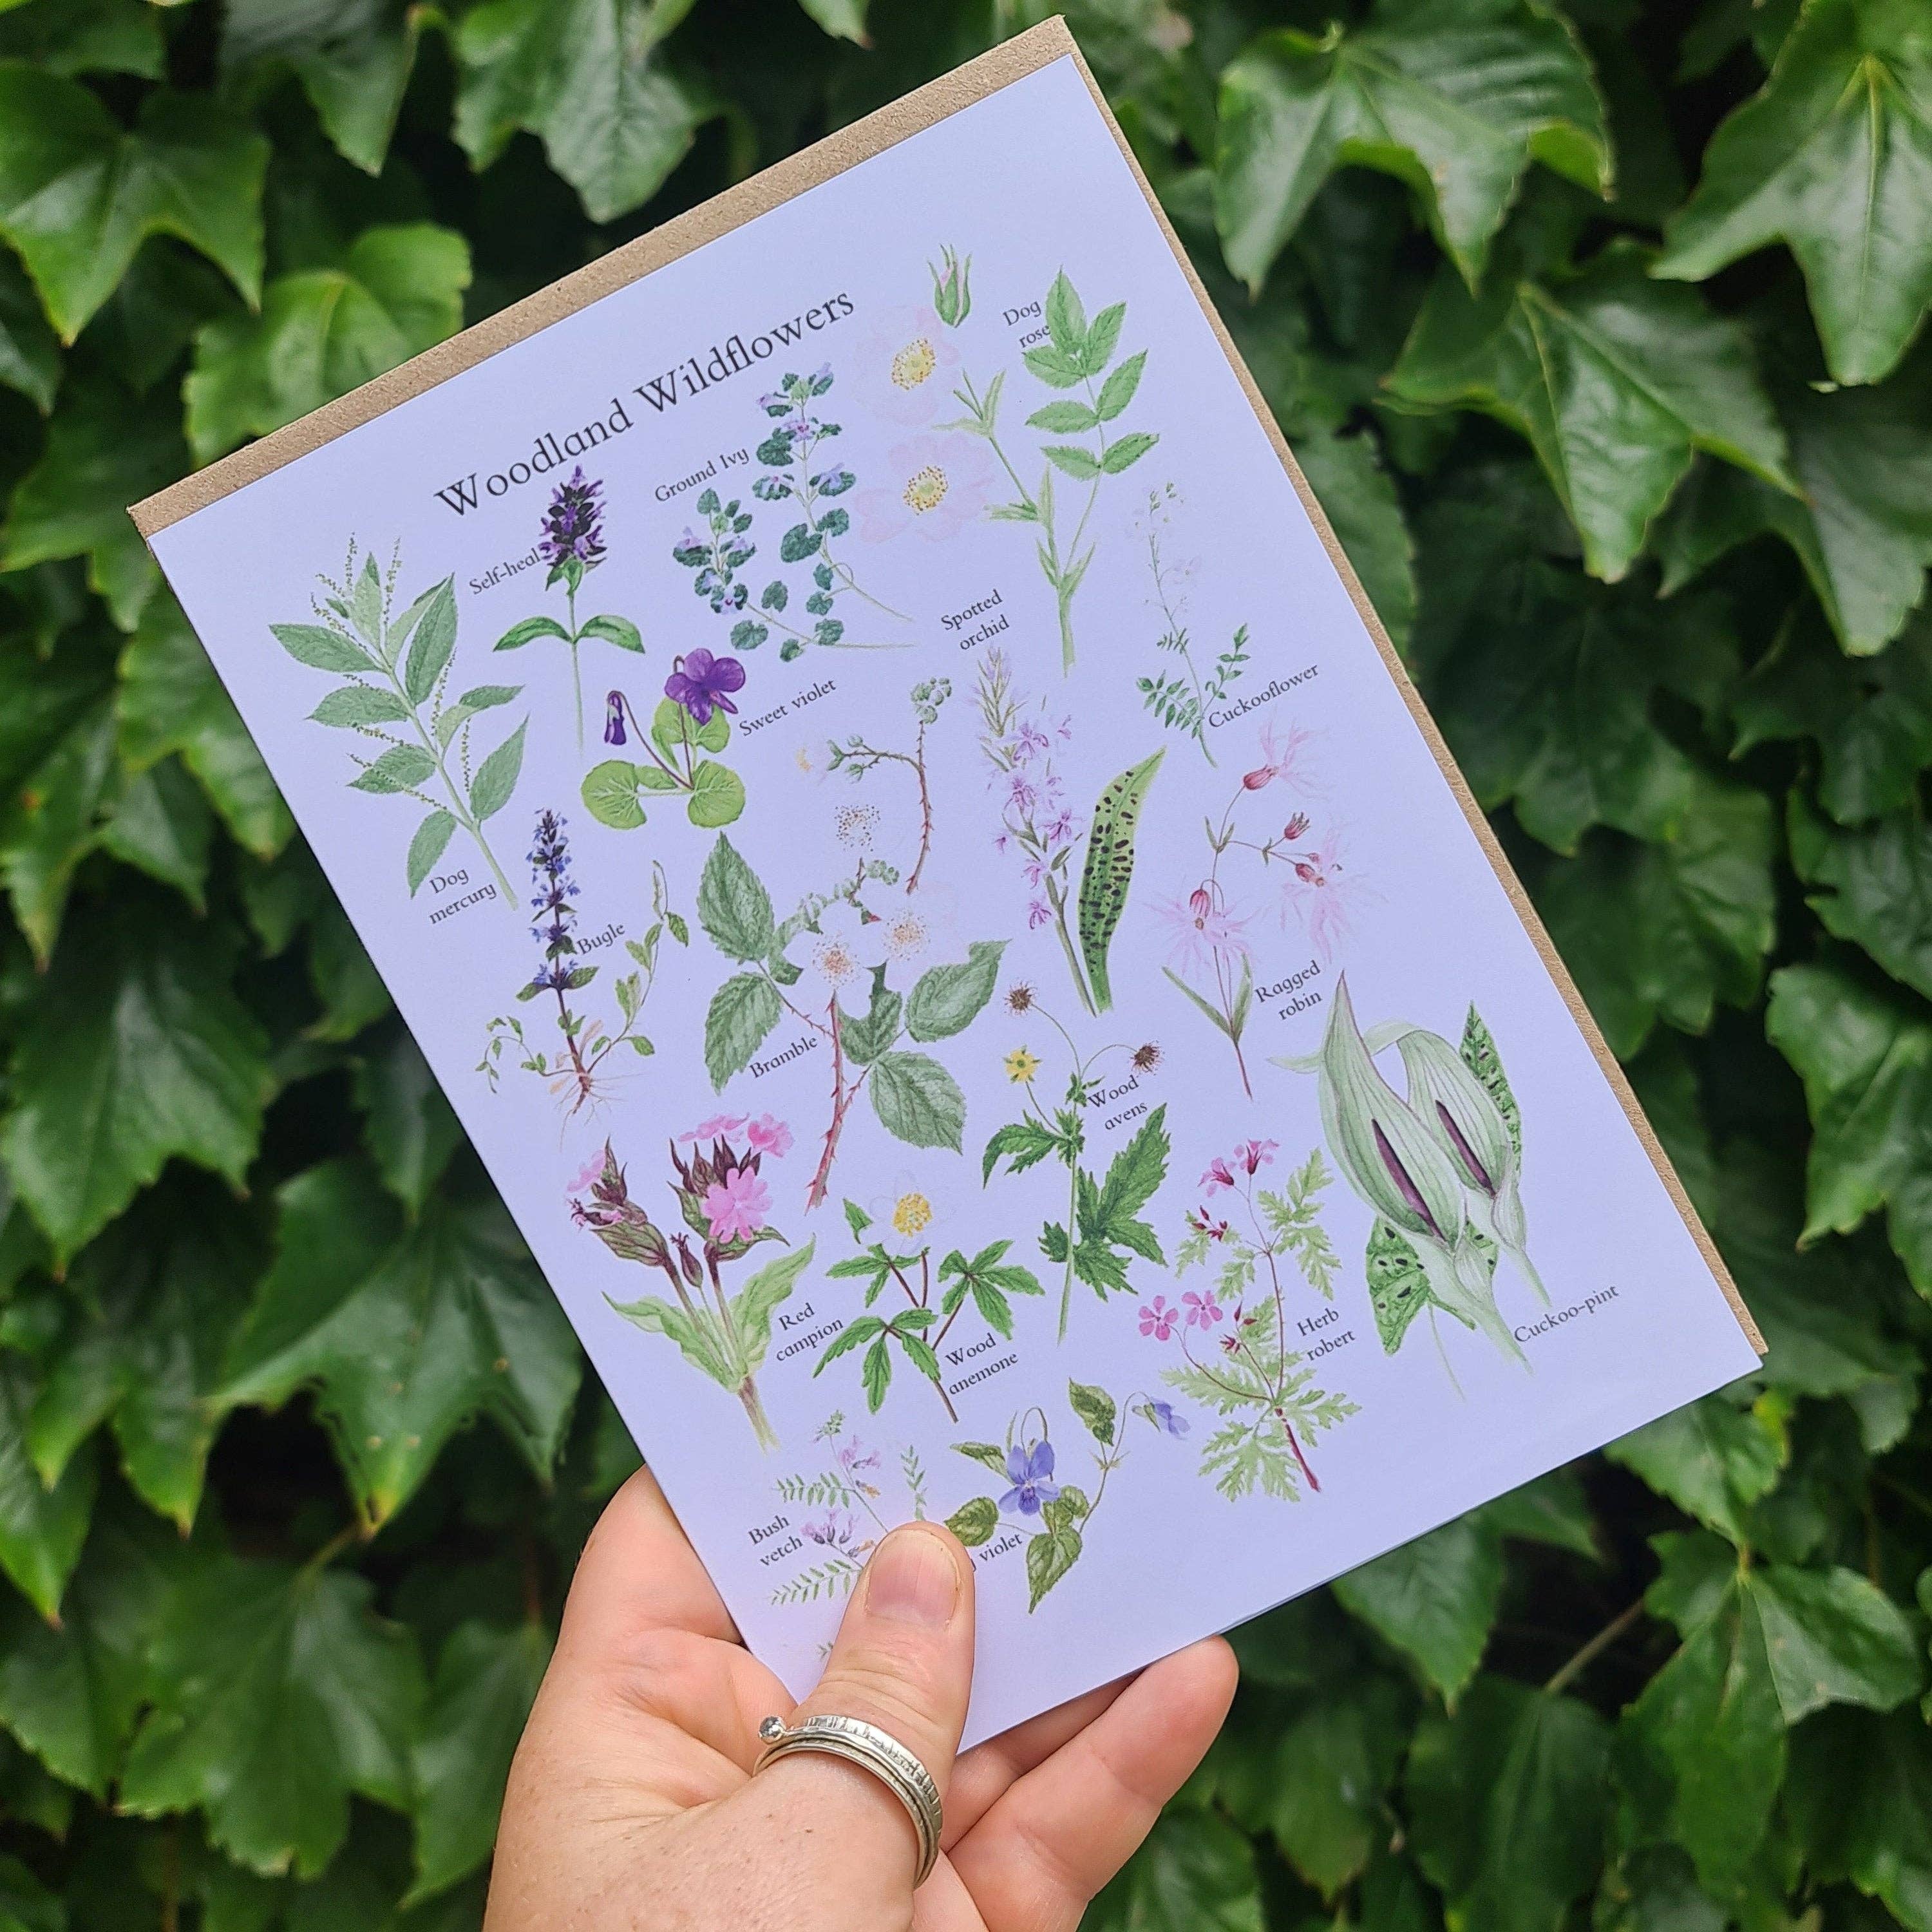 Woodland Wildflowers
Dog
rose
Ground Ivy
Self-heal
Spotted
orchid
Cuckooflower
Sweet violet
Dog
mercury
Bugle
Ragged
robin
Bramble
Wood
avens
Red
campion
Wood
anemone
Herb
robert
Cuckoo-pint
Bush
vetch
violet